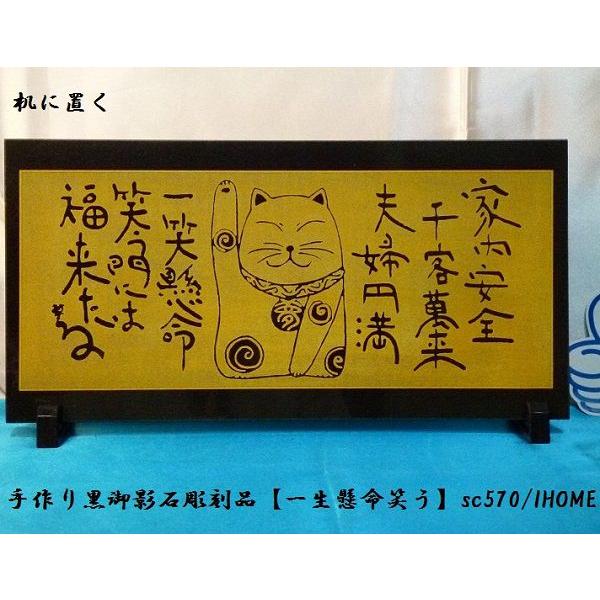 机に置く
家内安全
千客萬来
夫婦円満
一笑懸命
笑う門には
福来たる
手作り黒御影石彫刻品【一生懸命笑う】sc570/IHOME